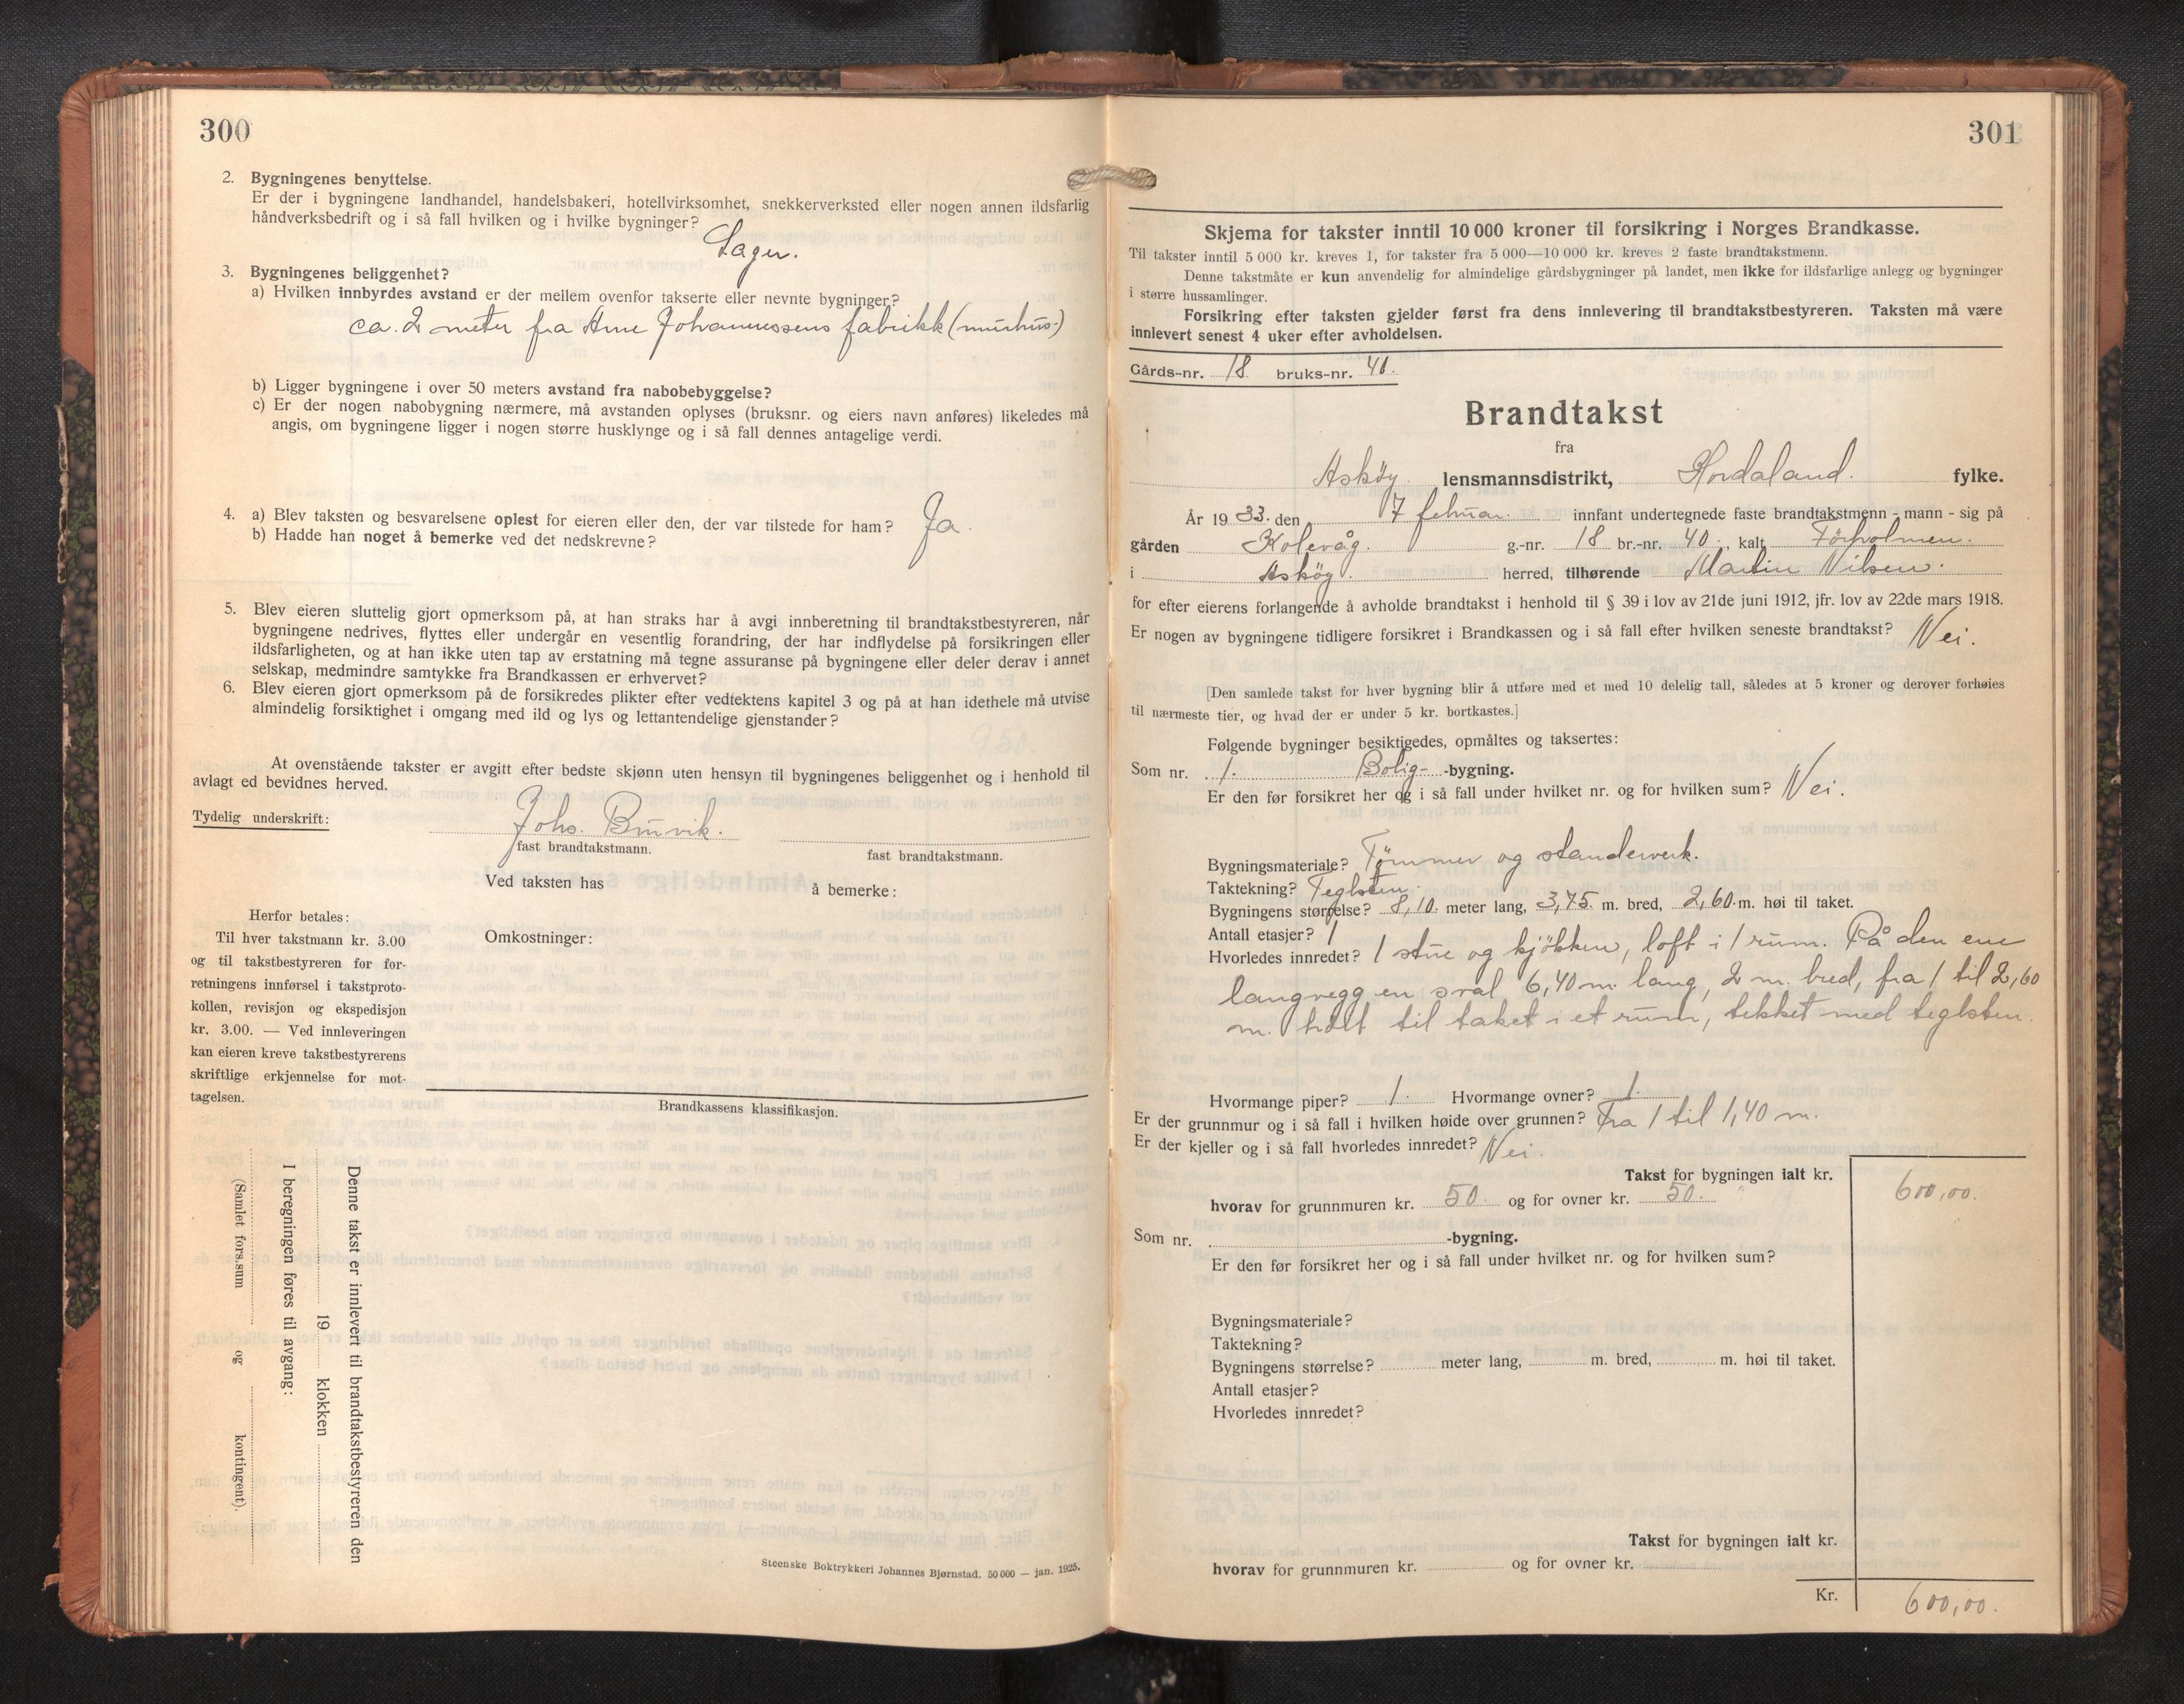 300
2. Bygningenes benyttelse.
Er der i bygningene landhandel, handelsbakeri, hotellvirksomhet, snekkerverksted eller nogen annen ildsfarlig
håndverksbedrift og i så fall hvilken og i hvilke bygninger?
Lager.
3. Bygningenes beliggenhet?
a) Hvilken innbyrdes avstand er der mellem ovenfor takserte eller nevnte bygninger?
ca. 2 meter fra Arne Johannessens fabrikk (murhus)
b) Ligger bygningene i over 50 meters avstand fra nabobebyggelse?
c) Er der nogen nabobygning nærmere, må avstanden oplyses (bruksnr. og eiers navn anføres) likeledes må
angis, om bygningene ligger i nogen større husklynge og i så fall dennes antagelige verdi.
4. a) Blev taksten og besvarelsene oplest for eieren eller den, der var tilstede for ham? Ja.
b) Hadde han noget å bemerke ved det nedskrevne?
5. Blev eieren sluttelig gjort opmerksom på, at han straks har å avgi innberetning til brandtakstbestyreren, når
bygningene nedrives, flyttes eller undergår en vesentlig forandring, der har indflydelse på forsikringen eller
ildsfarligheten, og at han ikke uten tap av erstatning må tegne assuranse på bygningene eller deler derav i annet
selskap, medmindre samtykke fra Brandkassen er erhvervet?
6. Blev eieren gjort opmerksom på de forsikredes plikter efter vedtektens kapitel 3 og på at han idethele må utvise
almindelig forsiktighet i omgang med ild og lys og lettantendelige gjenstander?
At ovenstående takster er avgitt efter bedste skjønn uten hensyn til bygningenes beliggenhet og i henhold til
avlagt ed bevidnes herved.
Tydelig underskrift: Johs.
fast brandtakstmann. fast brandtakstmann.
Ved taksten has å bemerke:
Herfor betales:
Til hver takstmann kr. 3.00
og til takstbestyreren for for-
retningens innførsel i takstproto-
kollen, revisjon og ekspedisjon
kr. 3.00. — Ved innleveringen
kan eieren kreve takstbestyrerens
skriftlige erkjennelse for mot-
tagelsen.
Omkostninger:
Brandkassens klassifikasjon.
Denne takst er innlevert til brandtakstbestyreren den
19 klokken
I beregningen føres til avgang:
(Samlet fors.sum og kontingent).
Steenske Boktrykkeri Johannes Bjørnstad. 50 000 — jan. 1925.
301
Skjema for takster inntil 10 000 kroner til forsikring i Norges Brandkasse.
Til takster inntil 5 000 kr. kreves 1, for takster fra 5 000—10 000 kr. kreves 2 faste brandtakstmenn.
Denne takstmåte er kun anvendelig for almindelige gårdsbygninger på landet, men ikke for ildsfarlige anlegg og bygninger
i større hussamlinger.
Forsikring efter taksten gjelder først fra dens innlevering til brandtakstbestyreren. Taksten må være
innlevert senest 4 uker efter avholdelsen.
Gårds-nr. 18 bruks-nr. 40.
Brandtakst
fra
Askøy lensmannsdistrikt, Hordaland. fylke.
År 1933. den 7 februar. innfant undertegnede faste brandtakstmenn - mann - sig på
gården Kolevåg. g.-nr. 18 br.-nr. 40., kalt
i Askøy. herred, tilhørende Martin Nilsen.
for efter eierens forlangende å avholde brandtakst i henhold til § 39 i lov av 21de juni 1912, jfr. lov av 22de mars 1918.
Er nogen av bygningene tidligere forsikret i Brandkassen og i så fall efter hvilken seneste brandtakst? Nei.
[Den samlede takst for hver bygning blir å utføre med et med 10 delelig tall, således at 5 kroner og derover forhøies
til nærmeste tier, og hvad der er under 5 kr. bortkastes.]
Følgende bygninger besiktigedes, opmåltes og taksertes:
Som nr. 1. Bolig- -bygning.
Er den før forsikret her og i så fall under hvilket nr. og for hvilken sum? Nei.
Bygningsmateriale? Tømmer og standerverk.
Taktekning? Teglsten.
Bygningens størrelse? 8,10. meter lang, 3,75. m. bred, 2,60. m. høi til taket.
Antall etasjer? 1
Hvorledes innredet? 1 stue og kjökken, loft i 1 rum. På den ene
langvegg en sval 6,40 m. lang, 2 m. bred, fra 1 til 2,60
m. höit til taket i et rum, tekket med teglsten.
Hvormange piper? 1. Hvormange ovner? 1.
Er der grunnmur og i så fall i hvilken høide over grunnen? Fra 1 til 1,40 m.
Er der kjeller og i så fall hvorledes innredet? Nei.
Takst for bygningen ialt kr. 600,00.
hvorav for grunnmuren kr. 50. og for ovner kr. 50.
Som nr. -bygning.
Er den før forsikret her og i så fall under hvilket nr. og for hvilken sum?
Bygningsmateriale?
Taktekning?
Bygningens størrelse? meter lang, m. bred, m. høi til taket.
Antall etasjer?
Hvorledes innredet?
Takst for bygningen ialt kr.
hvorav for grunnmuren kr. og for ovner kr.
Kr. 600,00.